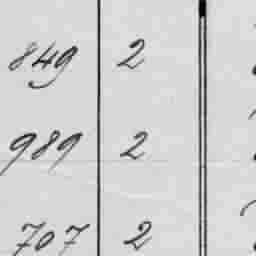 849 2
989 2
707 2